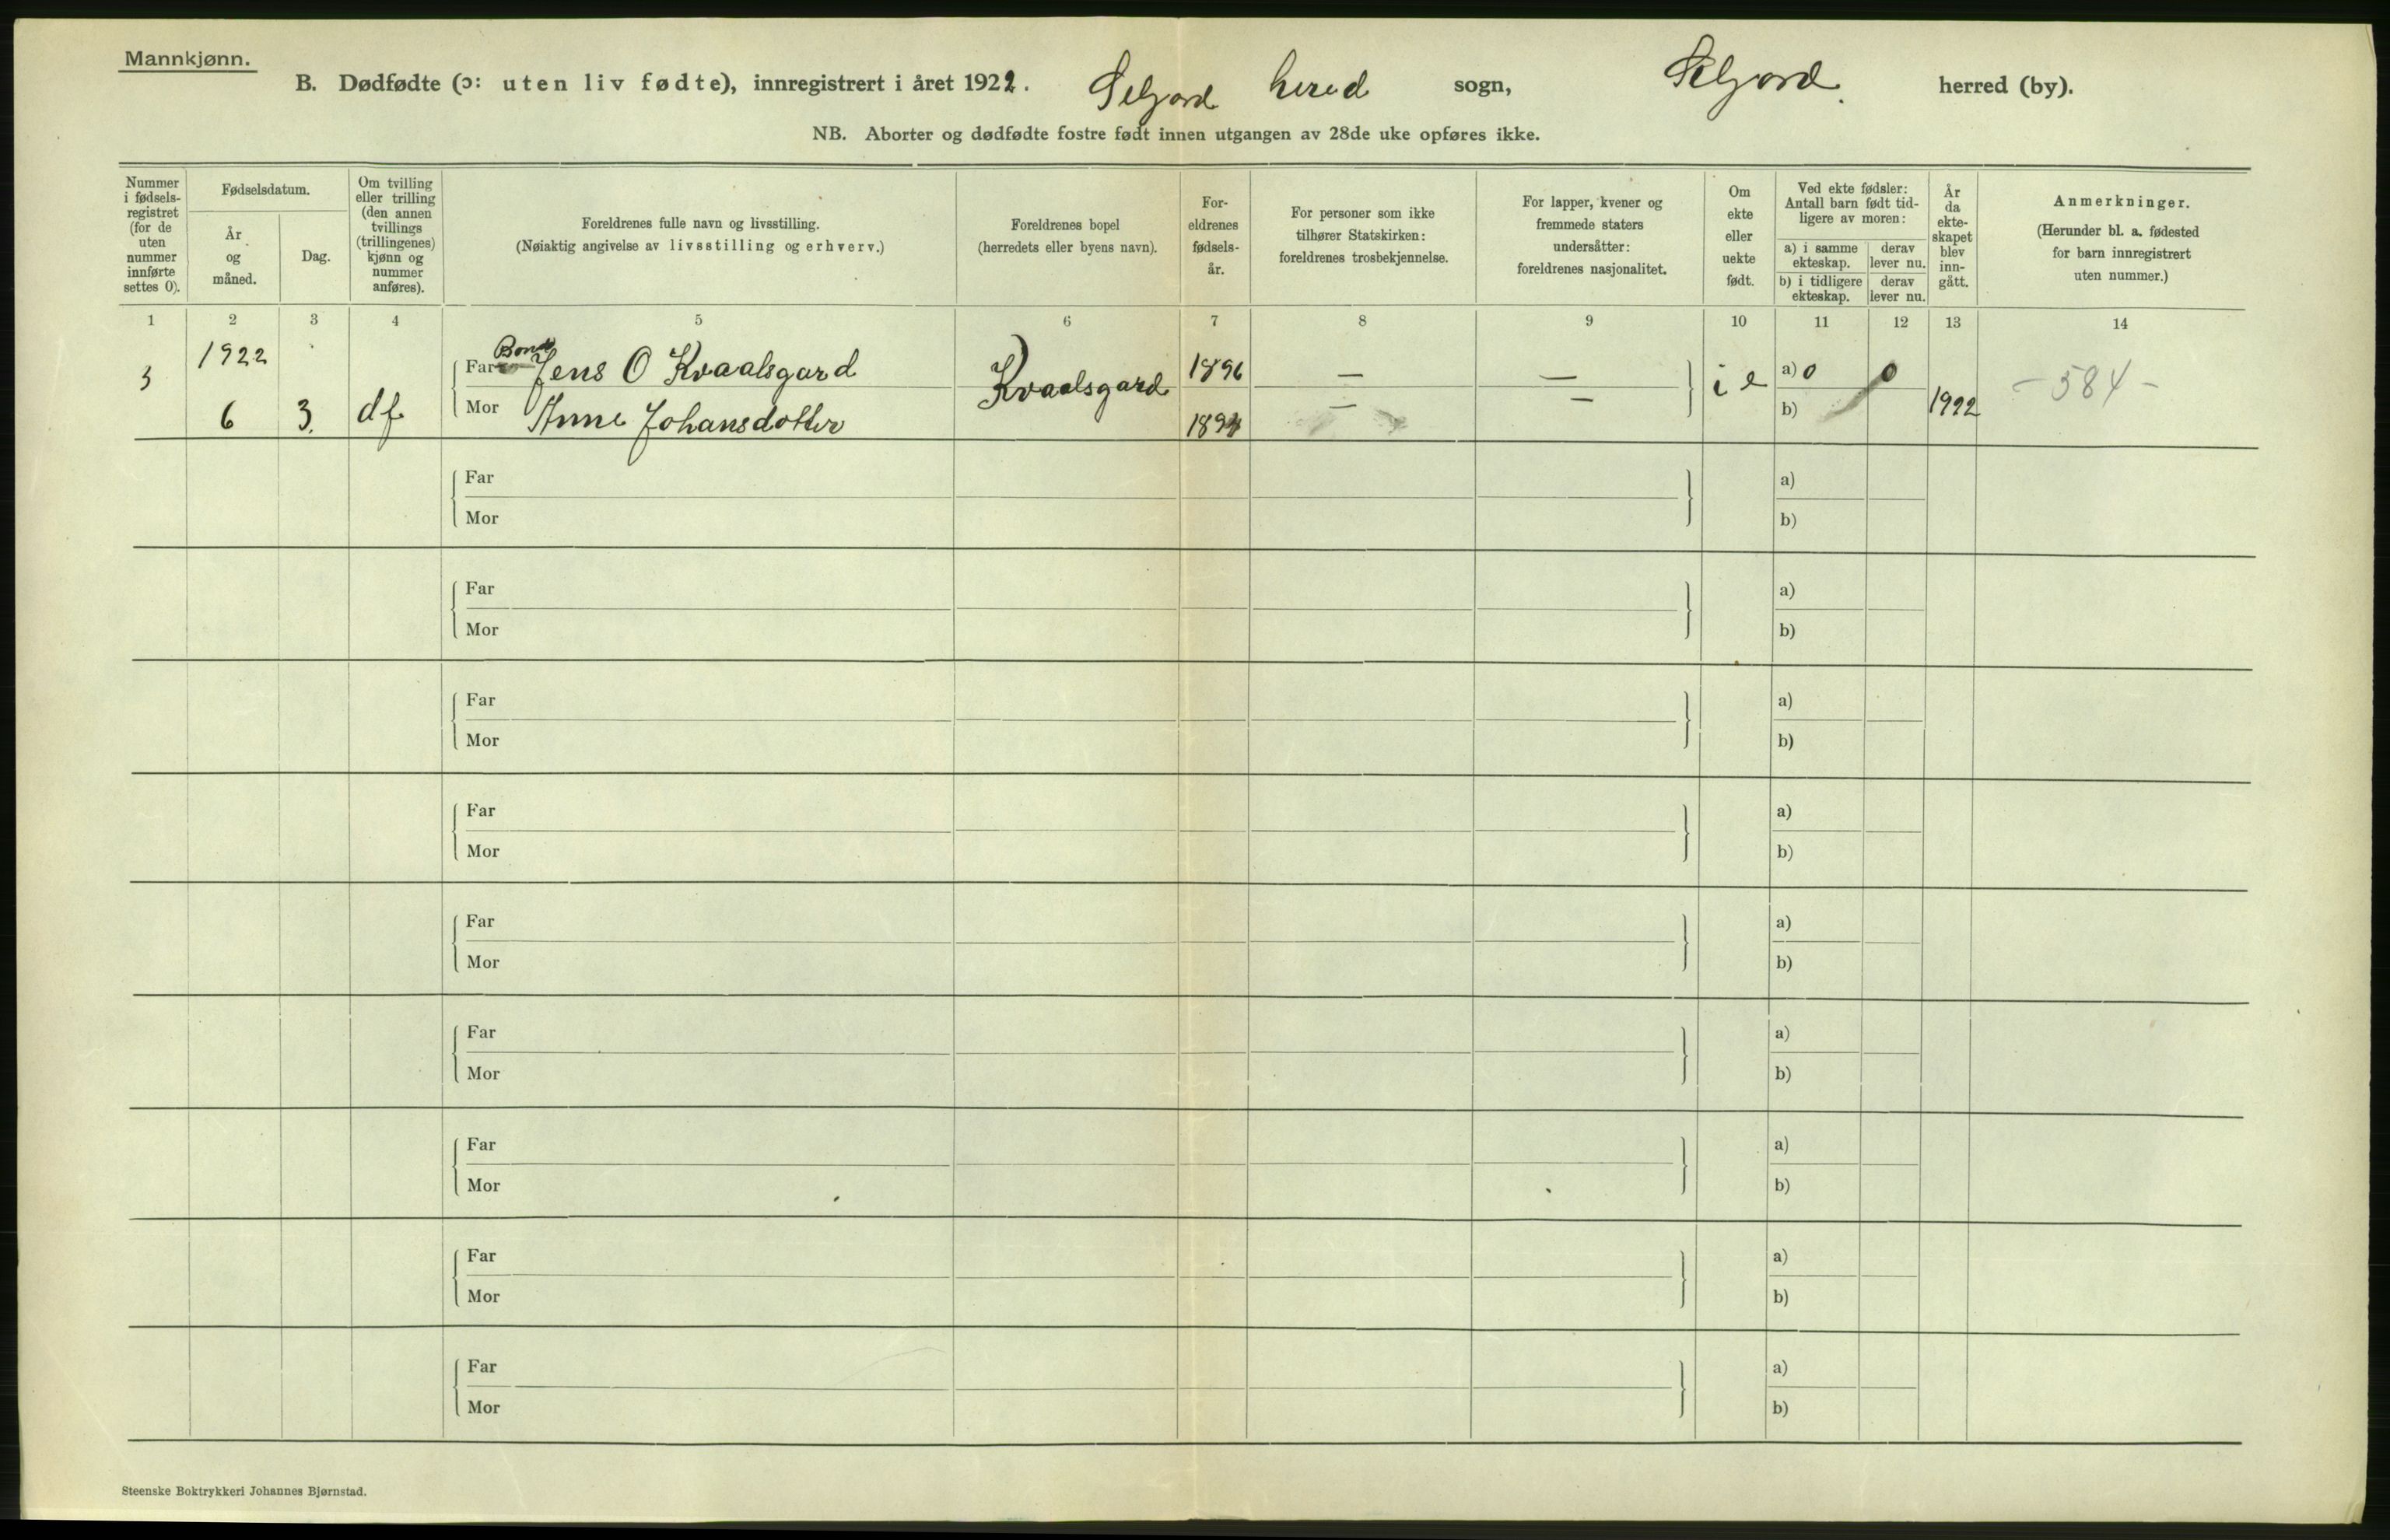 Mannkjønn.
B. Dødfødte (ɔ: uten liv fødte), innregistrert i året 1922. Seljord herad sogn, Seljord. herred (by).
NB. Aborter og dødfødte fostre født innen utgangen av 28de uke opføres ikke.
Nummer i fødsels-registret (for de uten nummer innførte settes 0).
Fødselsdatum.
År og måned.
Dag.
Om tvilling eller trilling (den annen tvillings (trillingenes) kjønn og nummer anføres).
Foreldrenes fulle navn og livsstilling.
(Nøiaktig angivelse av livsstilling og erhverv.)
Foreldrenes bopel
(herredets eller byens navn).
For-eldrenes fødsels-år.
For personer som ikke tilhører Statskirken: foreldrenes trosbekjennelse.
For lapper, kvener og fremmede staters undersåtter: foreldrenes nasjonalitet.
Om ekte eller uekte født.
Ved ekte fødsler: Antall barn født tid-ligere av moren:
a) i samme ekteskap.
derav lever nu.
b) i tidligere ekteskap.
derav lever nu.
År da ekte-skapet blev inn-gått.
Anmerkninger.
(Herunder bl. a. fødested for barn innregistrert uten nummer.)
1 2 3 4 5 6 7 8 9 10 11 12 13 14
3 1922 Far Bonde Jens O Kvaalsgard Kvaalsgard 1896 — — i e a) 0 0 1922 - 584 -
6 3. df Mor Anne Johansdotter 1894 — — b)
Far a)
Mor b)
Far a)
Mor b)
Far a)
Mor b)
Far a)
Mor b)
Far a)
Mor b)
Far a)
Mor b)
Far a)
Mor b)
Far a)
Mor b)
Far a)
Mor b)
Steenske Boktrykkeri Johannes Bjørnstad.